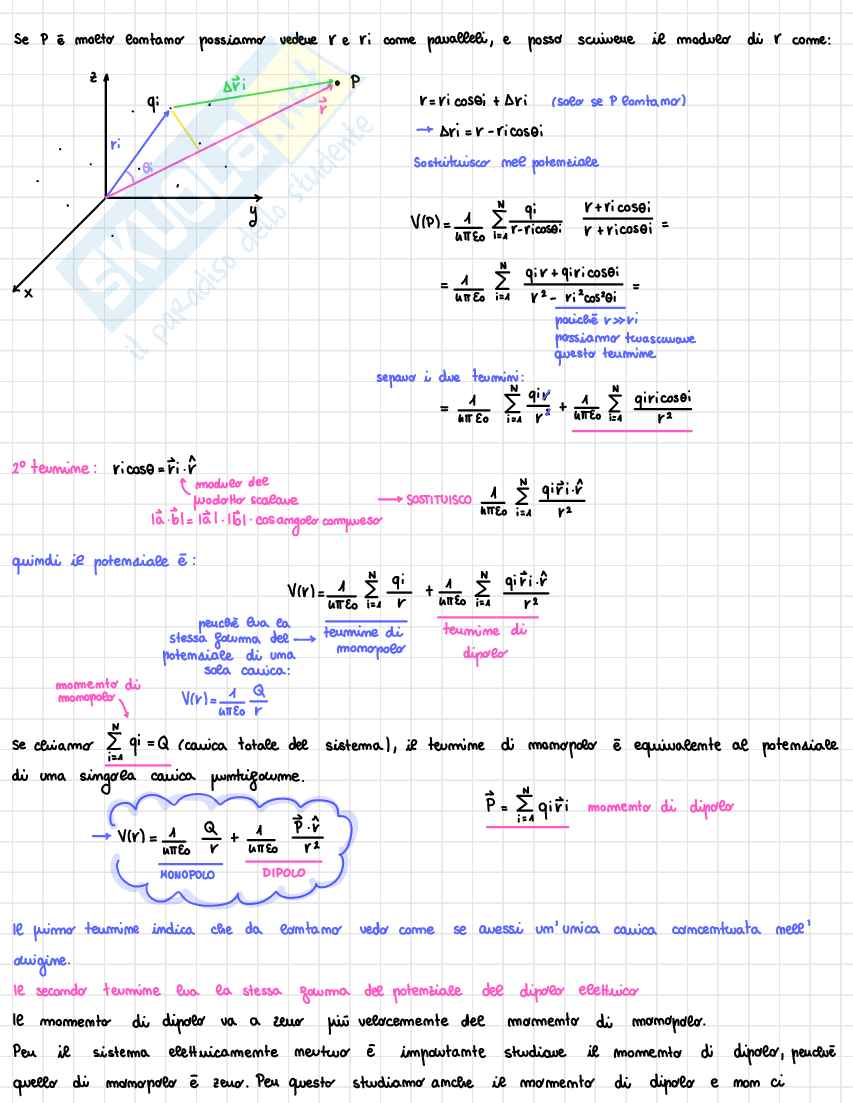 Se P è molto lontano possiamo vedere r e ri come paralleli, e posso scrivere il modulo di r come:
z
qi
Δr⃗i
P
r⃗
ri
θi
y
x
SKUOLA.net
il paradiso dello studente
r = ri cosθi + Δri (solo se P lontano)
→ Δri = r - ri cosθi
Sostituisco nel potenziale
V(P) = 1/4πε0 ∑_{i=1}^{N} qi/(r - ri cosθi) (r + ri cosθi)/(r + ri cosθi) =
= 1/4πε0 ∑_{i=1}^{N} (qi r + qi ri cosθi)/(r² - ri² cos²θi) =
poiché r >> ri
possiamo trascurare
questo termine
separo i due termini:
= 1/4πε0 ∑_{i=1}^{N} qi r/r² + 1/4πε0 ∑_{i=1}^{N} qi ri cosθi/r²
2° termine: ri cosθ = r⃗i · r̂
modulo del
prodotto scalare
|a⃗ · b⃗| = |a⃗| · |b⃗| · cos angolo compreso
→ SOSTITUISCO 1/4πε0 ∑_{i=1}^{N} qi r⃗i · r̂/r²
quindi il potenziale è:
V(r) = 1/4πε0 ∑_{i=1}^{N} qi/r + 1/4πε0 ∑_{i=1}^{N} qi r⃗i · r̂/r²
perché ha la
stessa forma del →
potenziale di una
sola carica:
V(r) = 1/4πε0 Q/r
termine di
monopolo
termine di
dipolo
momento di
monopolo
Se chiamo ∑_{i=1}^{N} qi = Q (carica totale del sistema), il termine di monopolo è equivalente al potenziale
di una singola carica puntiforme.
P⃗ = ∑_{i=1}^{N} qi r⃗i momento di dipolo
→ V(r) = 1/4πε0 Q/r + 1/4πε0 P⃗ · r̂/r²
MONOPOLO
DIPOLO
Il primo termine indica che da lontano vedo come se avessi un'unica carica concentrata nell'
origine.
Il secondo termine ha la stessa forma del potenziale del dipolo elettrico
Il momento di dipolo va a zero più velocemente del momento di monopolo.
Per il sistema elettricamente neutro è importante studiare il momento di dipolo, perché
quello di monopolo è zero. Per questo studiamo anche il momento di dipolo e non ci